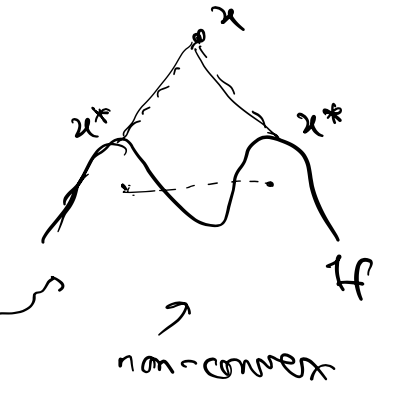 x
x* x*
H
non-convex